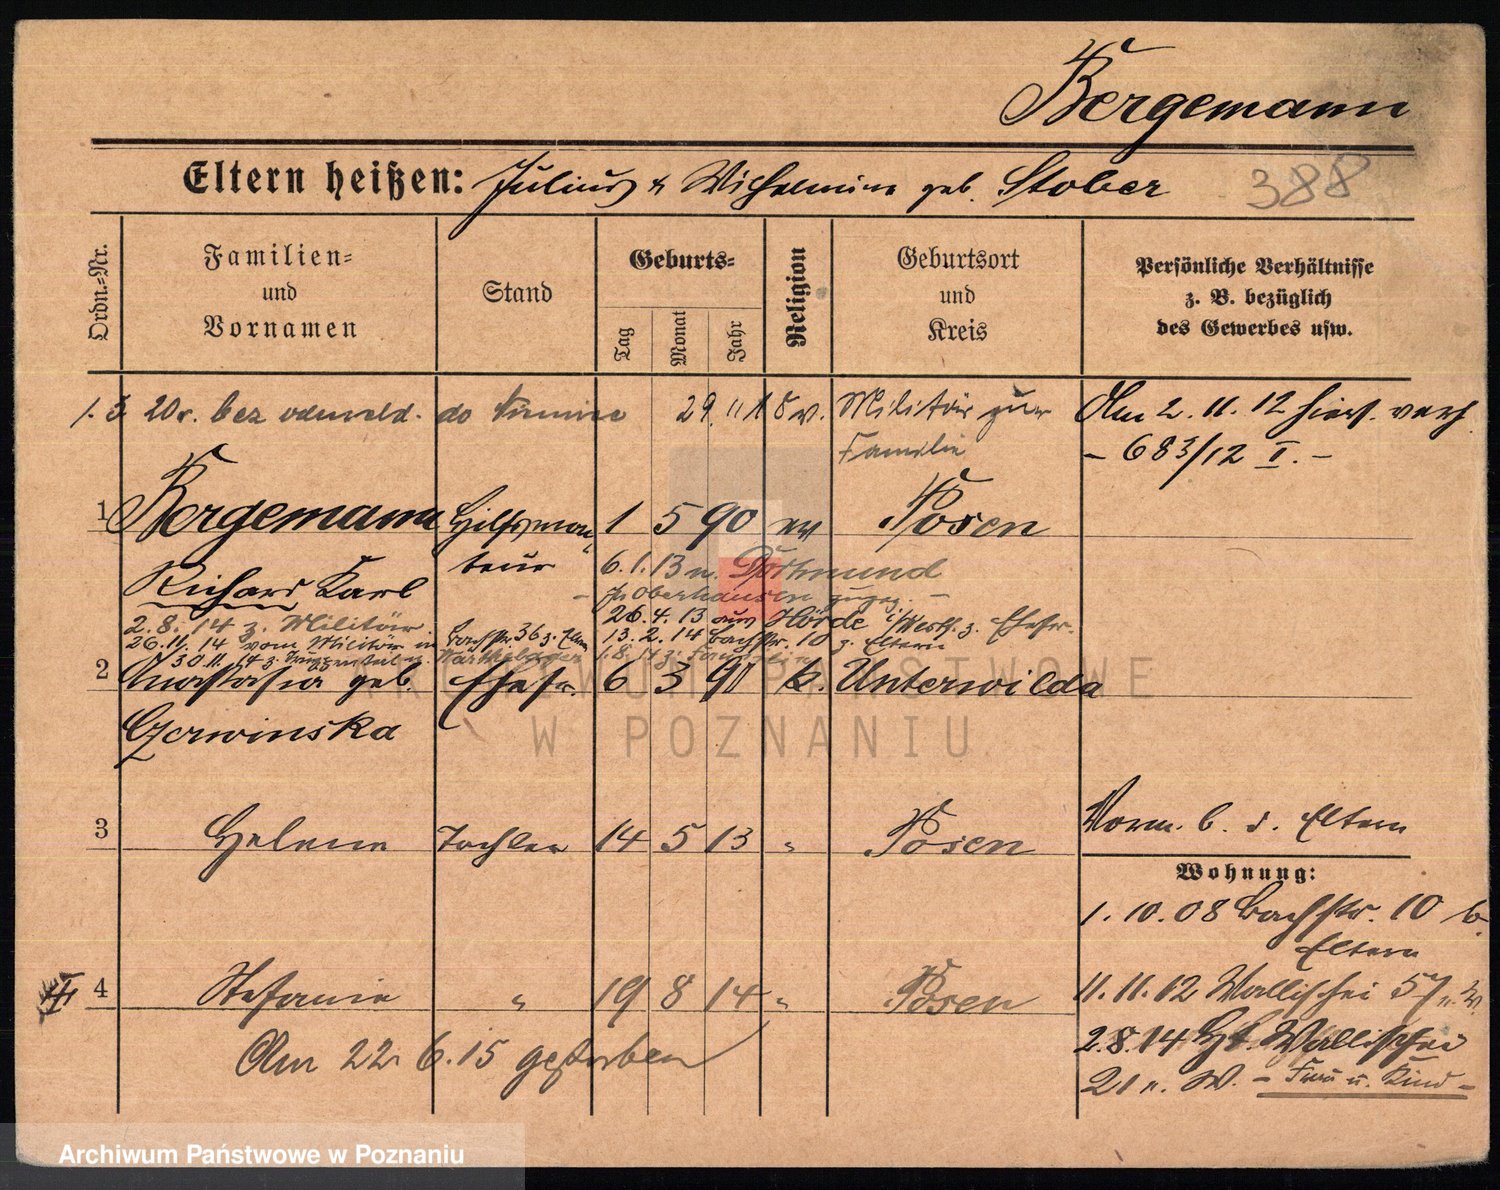 Bergemann
Eltern heißen: Julius & Wilhelmine geb. Stober
388
Ordn.-Nr.
Familien-
und
Vornamen
Stand
Geburts-
Tag
Monat
Jahr
Religion
Geburtsort
und
Kreis
Persönliche Verhältnisse
z. B. bezüglich
des Gewerbes usw.
29. 11. 18 v. Militär zur
Familie
Am 2. 11. 12 hier verh.
- 683/12 I. -
1 Bergemann Hilfsmon- 1 5 90 ev Posen
teur
Richard Karl
6. 1. 13 n. Dortmund
Oberhausen
26. 4. 13 aus Hörde i/Westf. z. Ehefr.
2. 8. 14 z. Militär
26. 11. 14 vom Militär in
Bachstr. 36 z. Eltern
13. 2. 14 Bachstr. 10 z. Eltern
30. 11. 14 z. Truppenteil
2 Anastasia geb. Ehefr. 6 3 91 k. Unterwilda
Czerwinska
3 Helene Tochter 14 5 13 " Posen
Vorm. b. d. Eltern
Wohnung:
1. 10. 08 Bachstr. 10 b.
Eltern
4 Stefanie " 19 8 14 " Posen
Am 22. 6. 15 gestorben
11. 11. 12 Wallischei 57 n. W.
2. 8. 14 Wallischei
21 n. W. - Frau u. Kind -
ARCHIWUM PAŃSTWOWE
W POZNANIU
Archiwum Państwowe w Poznaniu